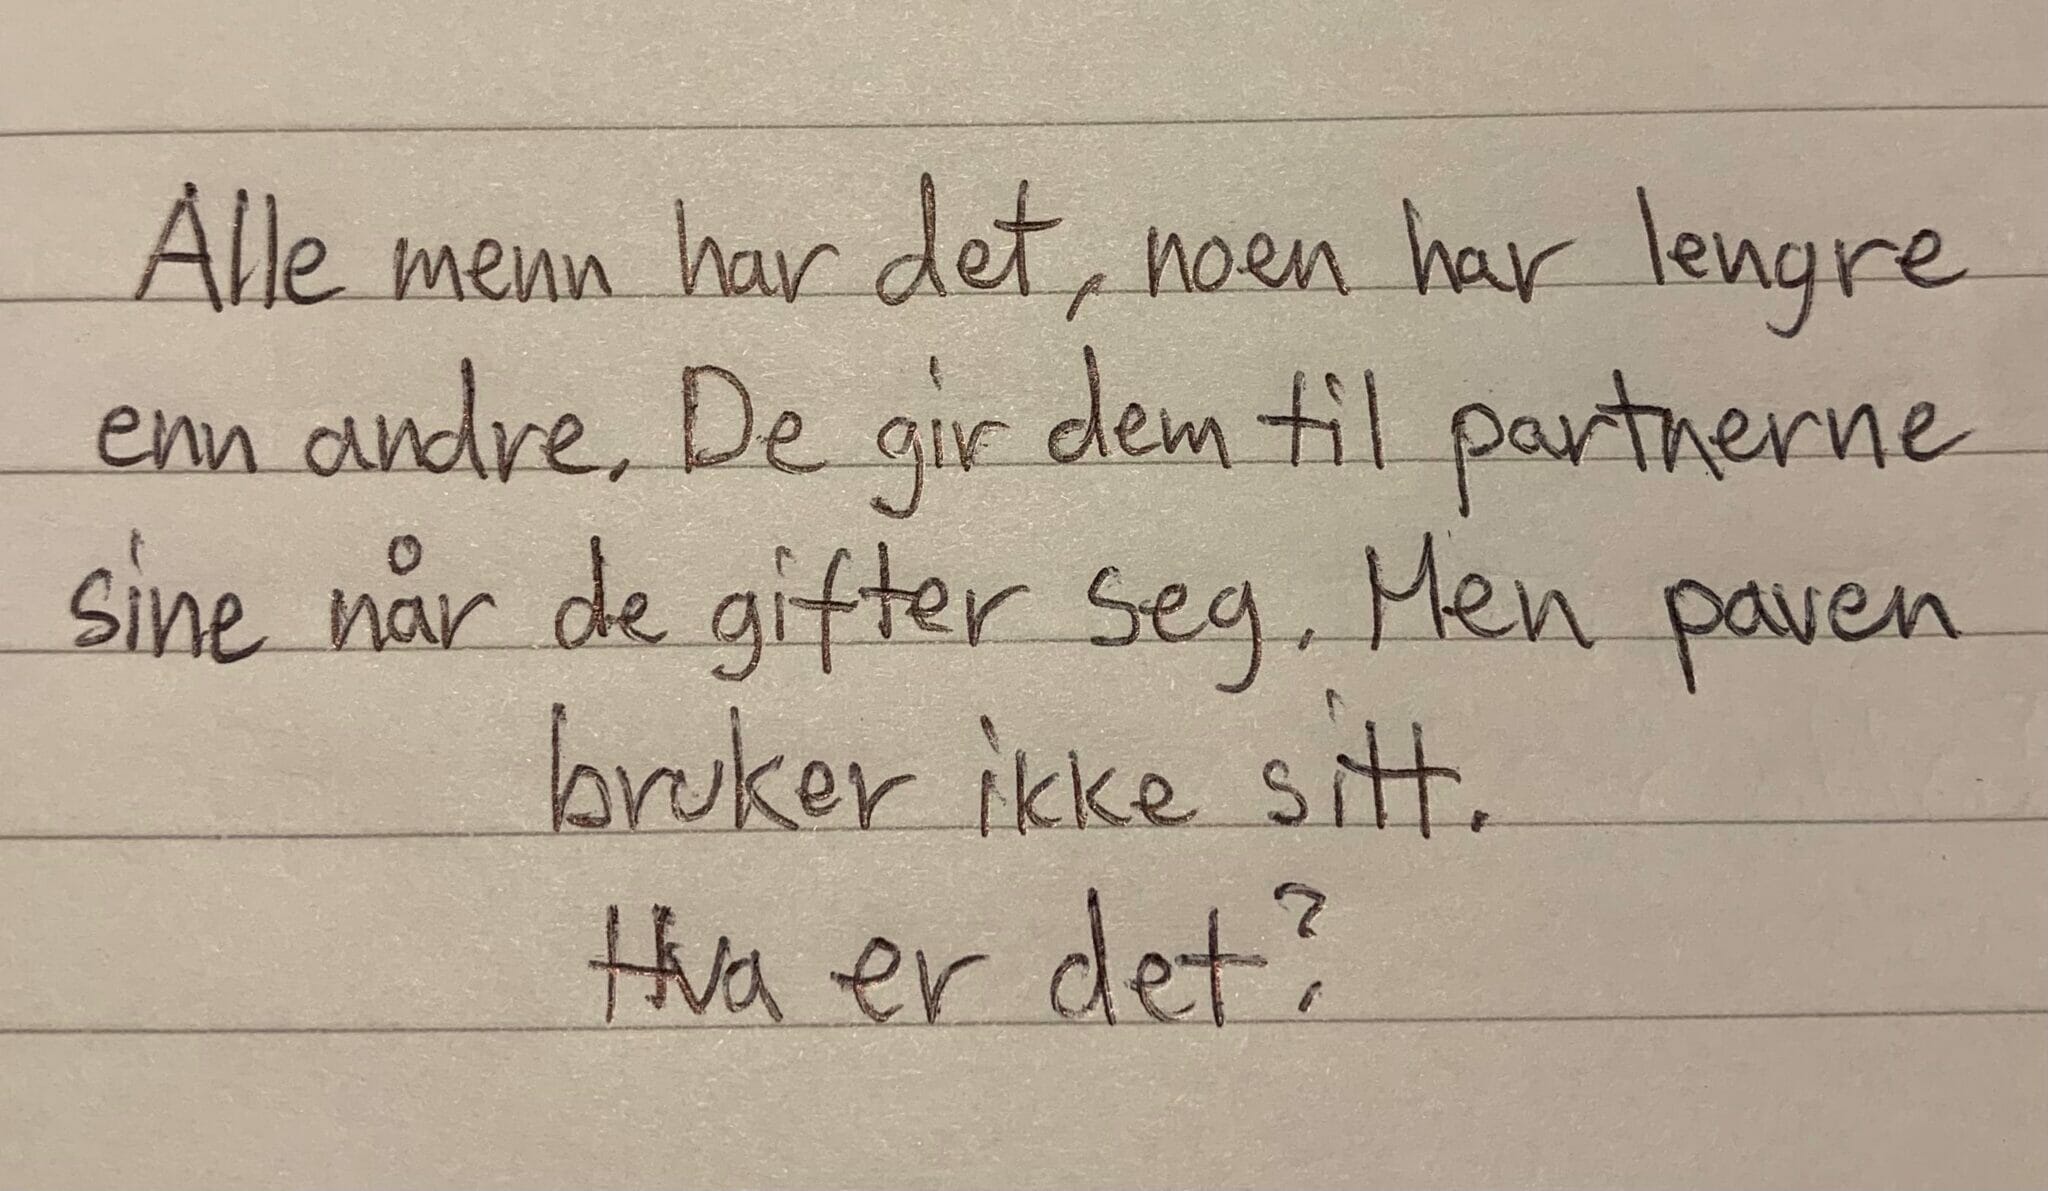 Alle menn har det, noen har lengre
enn andre. De gir dem til partnerne
sine når de gifter seg. Men paven
bruker ikke sitt.
Hva er det?